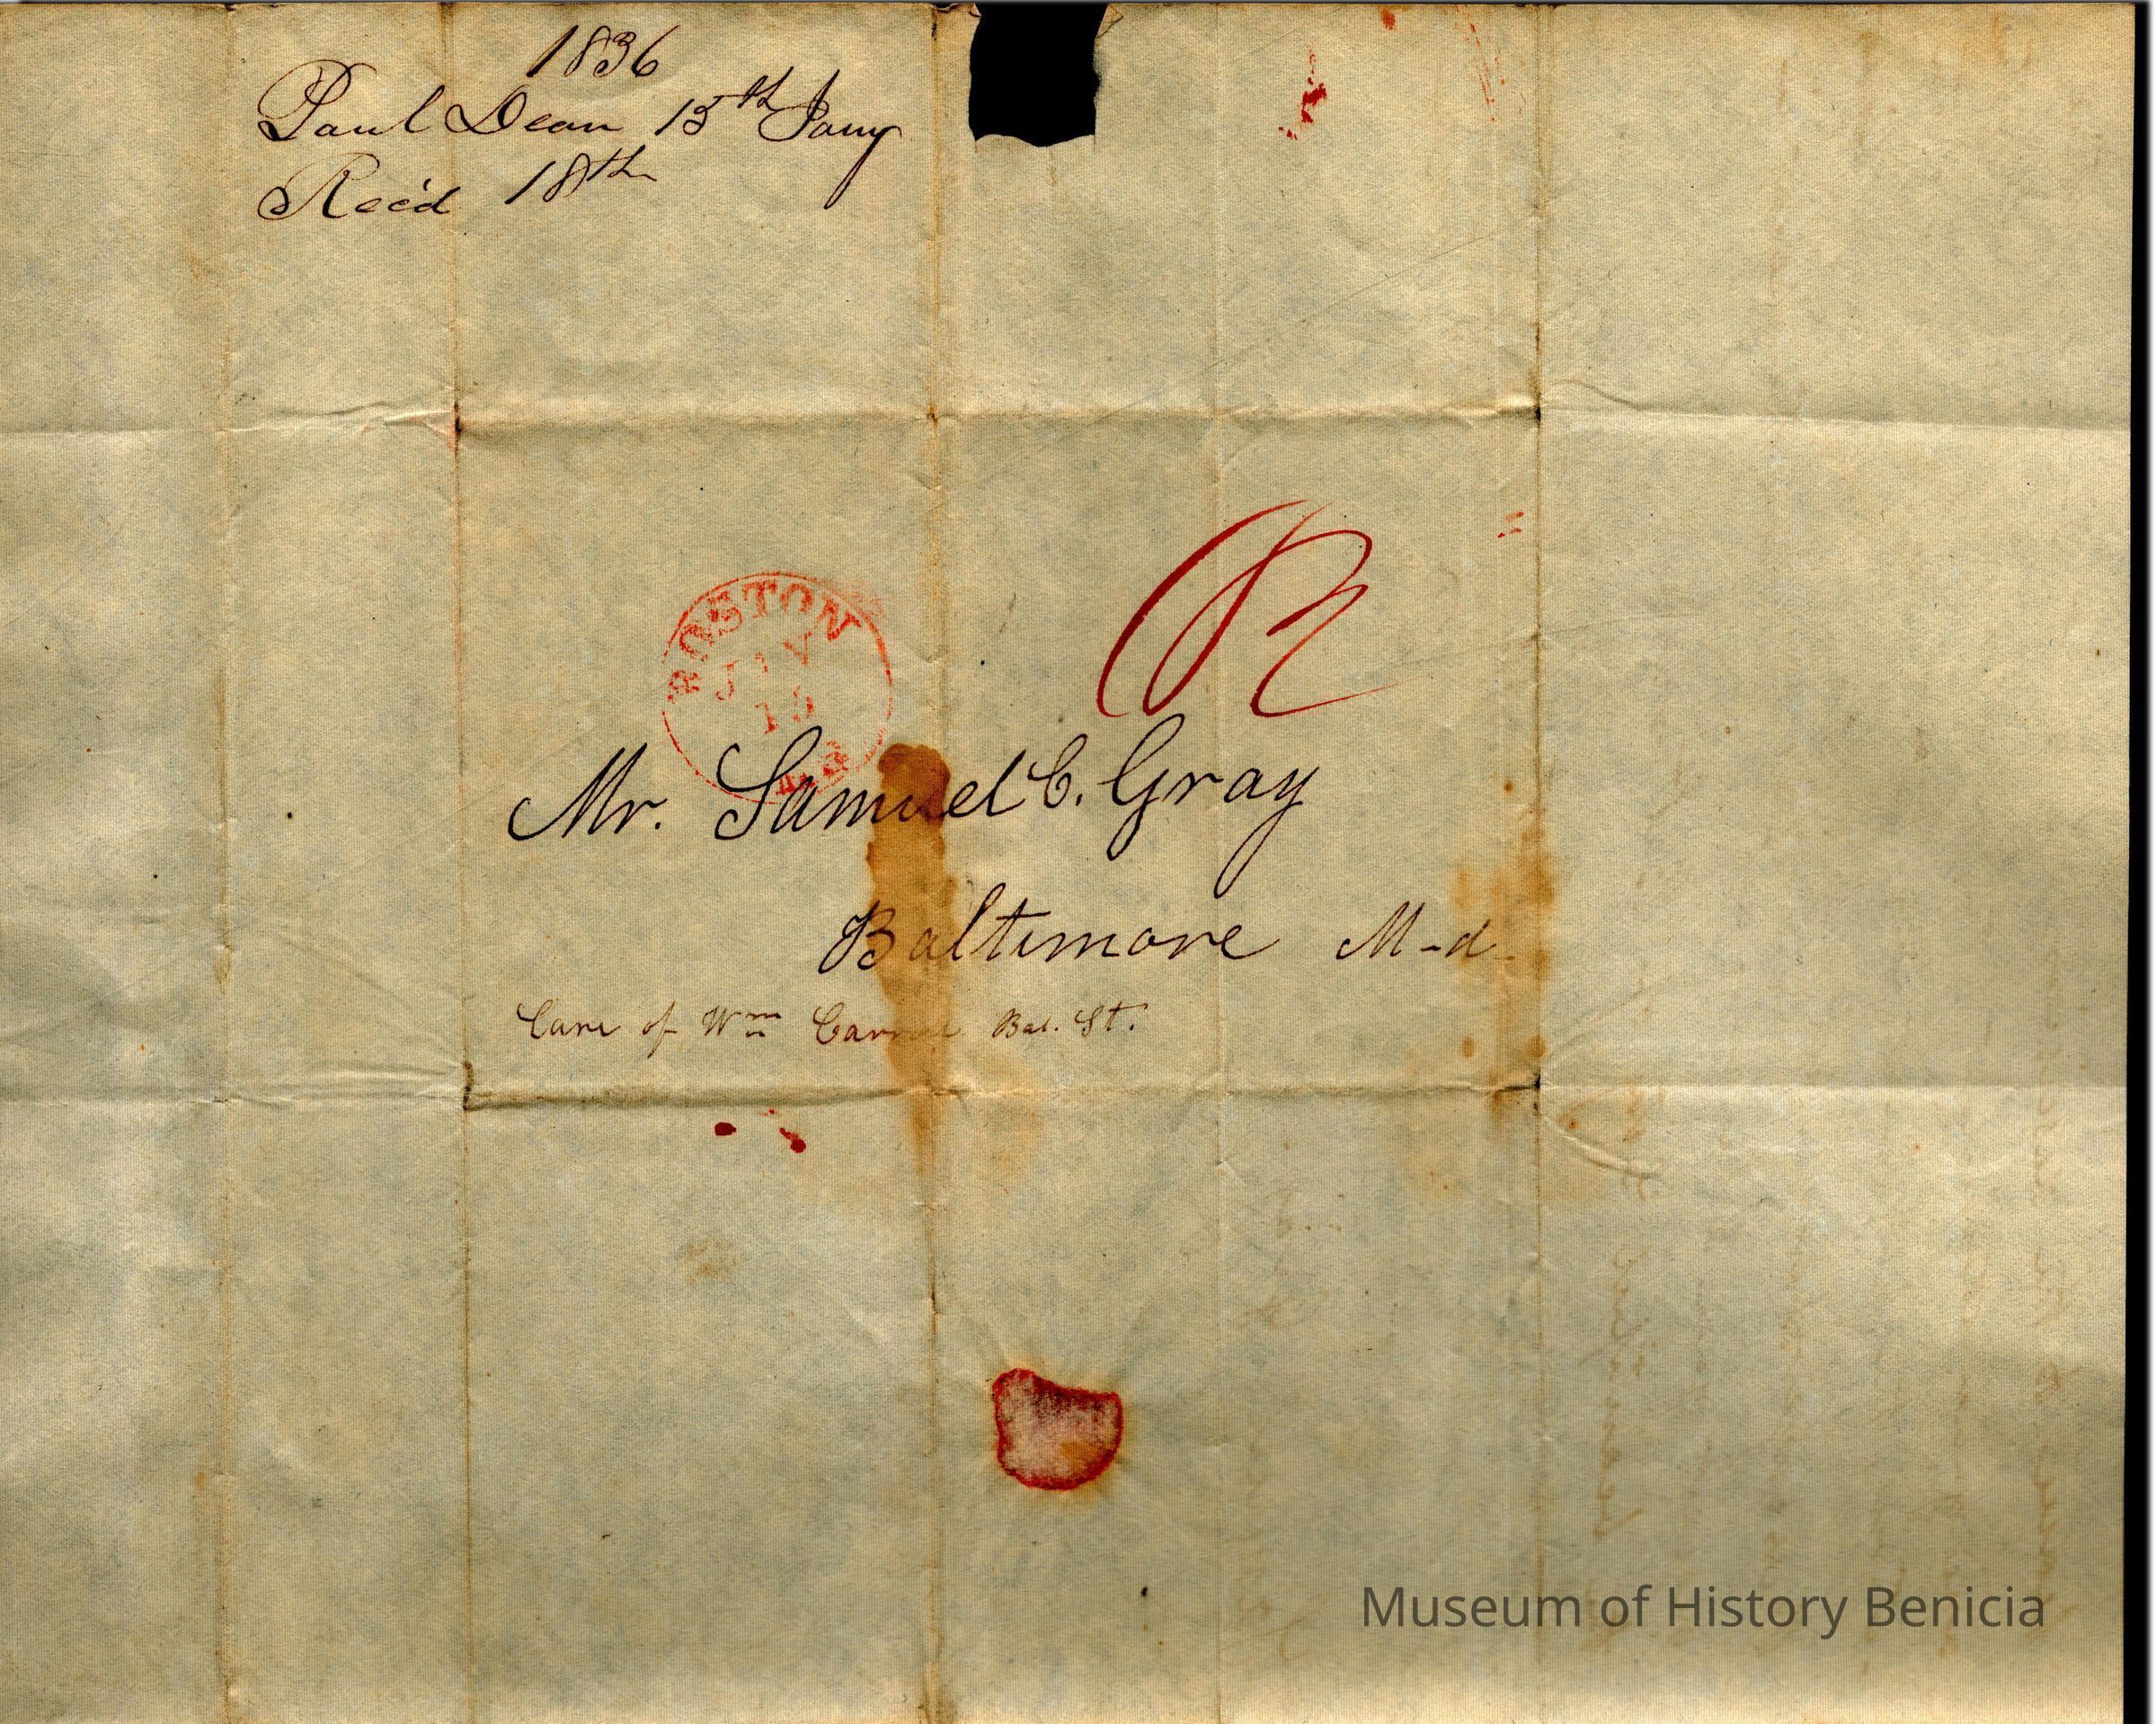 1836
Paul Dean 15th Jany
Rec'd 18th
BOSTON
Mr. Samuel C. Gray
Baltimore M-d
Care of Wm Carrol Bal. St.
Museum of History Benicia